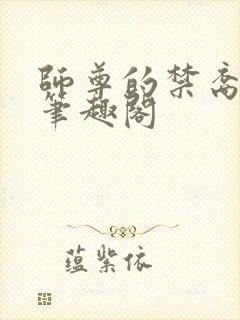 師尊的禁脔
筆趣阁
蕴紫依